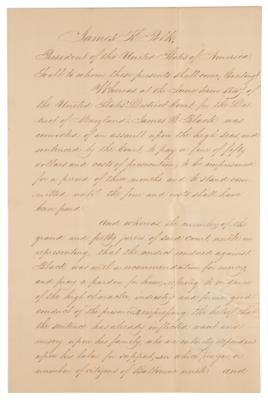 James K. Polk,
President of the United States of America
To all to whom these presents shall come, Greeting:
Whereas at the June term 1847 of
the United States District Court for the Dis-
trict of Maryland, James Black was
convicted of an assault upon the high seas and
sentenced by the Court to pay a fine of fifty
dollars and costs of prosecution, to be imprisoned
for a period of three months and to stand com-
mitted until the fine and costs shall have
been paid.
And whereas the members of the
grand and petty juries of said court unite in
representing, that the verdict rendered against
Black was with a recommendation for mercy,
and pray a pardon for him,
of the high character, industry and former good
conduct of the prisoner, expressing the belief that
the sentence has already inflicted want and
misery upon his family, who are entirely dependent
upon his labor for support, in which prayer a
number of citizens of Baltimore unite: and